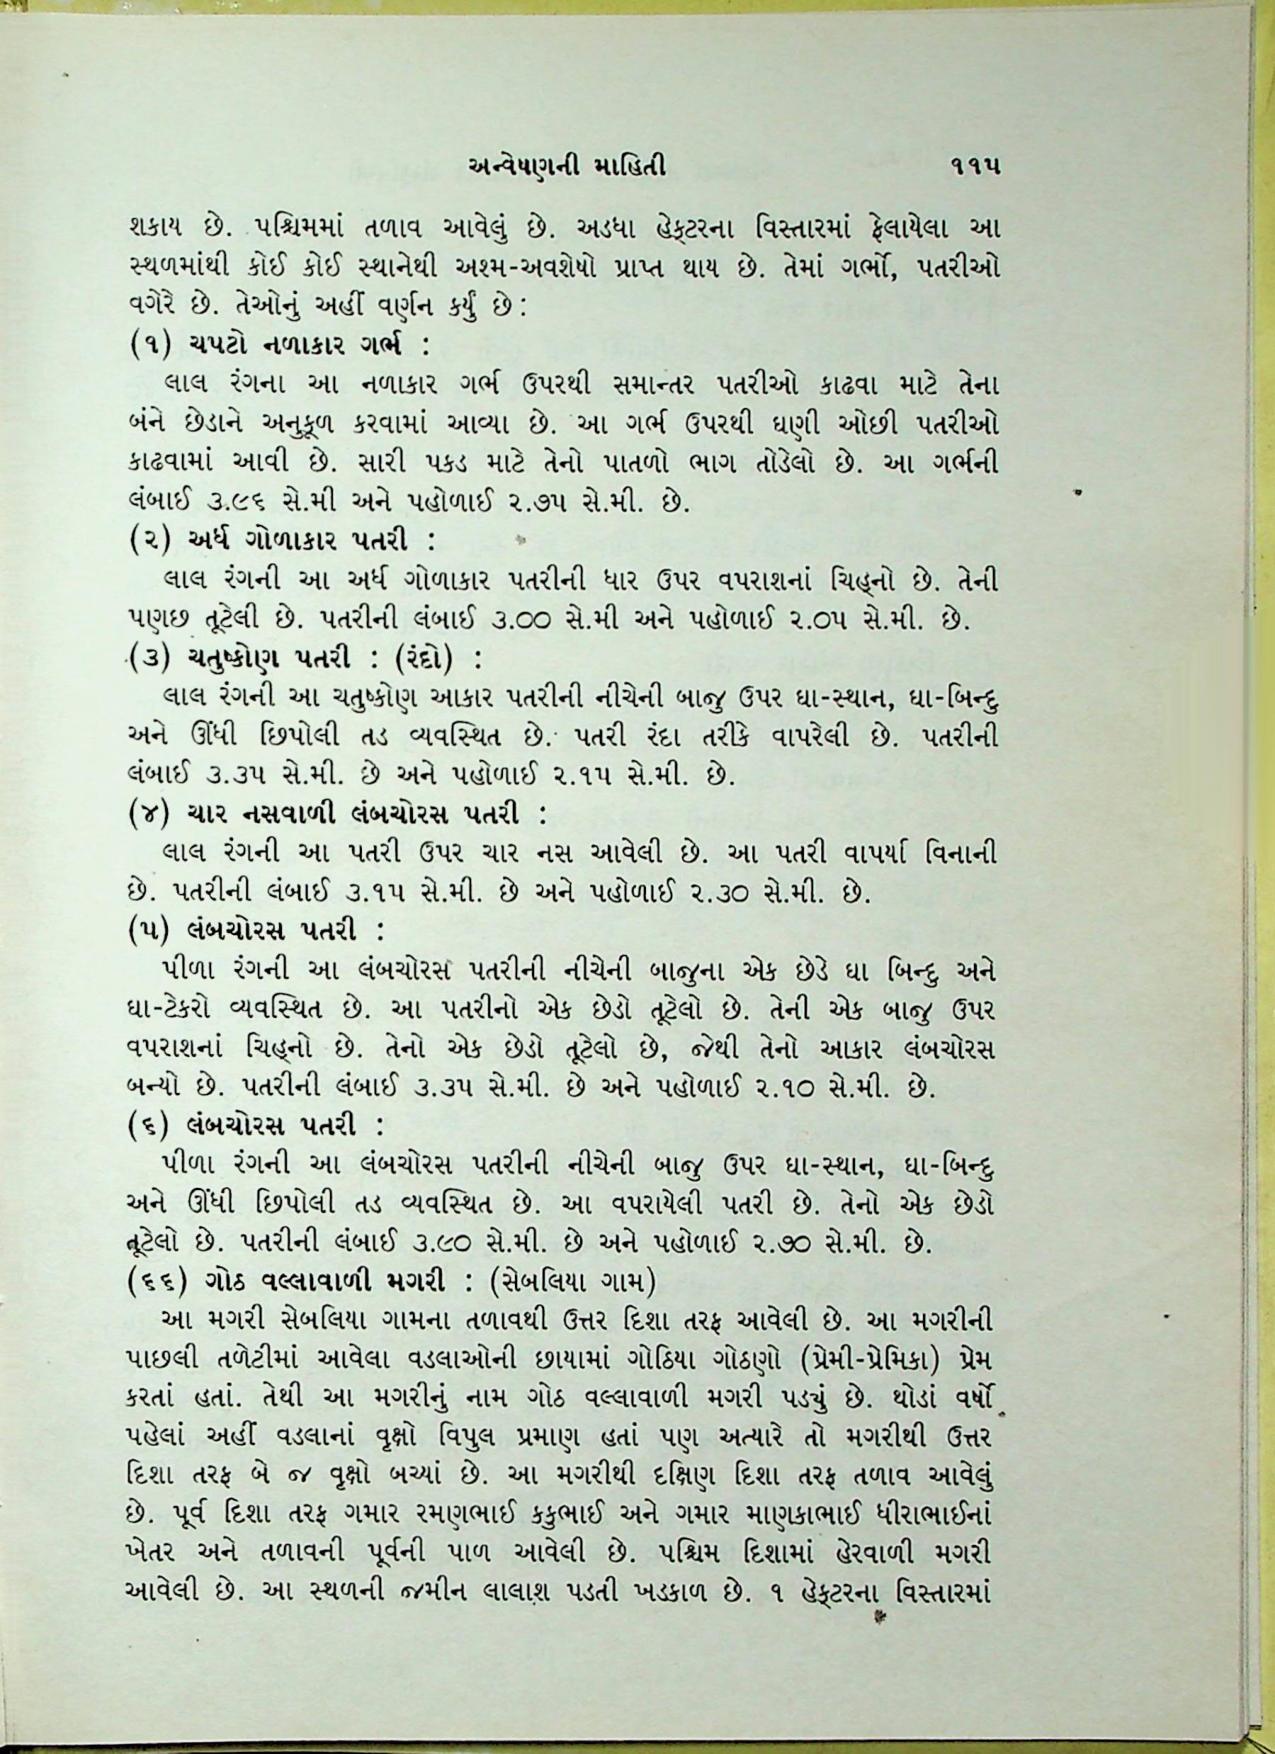 અન્વેષણની માહિતી ૧૧૫
શકાય છે. પશ્ચિમમાં તળાવ આવેલું છે. અડધા હેક્ટરના વિસ્તારમાં ફેલાયેલા આ
સ્થળમાંથી કોઈ કોઈ સ્થાનેથી અશ્મ-અવશેષો પ્રાપ્ત થાય છે. તેમાં ગર્ભો, પતરીઓ
વગેરે છે. તેઓનું અહીં વર્ણન કર્યું છે :
(૧) ચપટો નળાકાર ગર્ભ :
લાલ રંગના આ નળાકાર ગર્ભ ઉપરથી સમાન્તર પતરીઓ કાઢવા માટે તેના
બંને છેડાને અનુકૂળ કરવામાં આવ્યા છે. આ ગર્ભ ઉપરથી ઘણી ઓછી પતરીઓ
કાઢવામાં આવી છે. સારી પકડ માટે તેનો પાતળો ભાગ તોડેલો છે. આ ગર્ભની
લંબાઈ ૩.૯૬ સે.મી અને પહોળાઈ ૨.૭૫ સે.મી. છે.
(૨) અર્ધ ગોળાકાર પતરી :
લાલ રંગની આ અર્ધ ગોળાકાર પતરીની ધાર ઉપર વપરાશનાં ચિહ્નો છે. તેની
પણછ તૂટેલી છે. પતરીની લંબાઈ ૩.૦૦ સે.મી અને પહોળાઈ ૨.૦૫ સે.મી. છે.
(૩) ચતુષ્કોણ પતરી : (રંદો) :
લાલ રંગની આ ચતુષ્કોણ આકાર પતરીની નીચેની બાજુ ઉપર ઘા-સ્થાન, ઘા-બિન્દુ
અને ઊંધી છિપોલી તડ વ્યવસ્થિત છે. પતરી રંદા તરીકે વાપરેલી છે. પતરીની
લંબાઈ ૩.૩૫ સે.મી. છે અને પહોળાઈ ૨.૧૫ સે.મી. છે.
(૪) ચાર નસવાળી લંબચોરસ પતરી :
લાલ રંગની આ પતરી ઉપર ચાર નસ આવેલી છે. આ પતરી વાપર્યા વિનાની
છે. પતરીની લંબાઈ ૩.૧૫ સે.મી. છે અને પહોળાઈ ૨.૩૦ સે.મી. છે.
(૫) લંબચોરસ પતરી :
પીળા રંગની આ લંબચોરસ પતરીની નીચેની બાજુના એક છેડે ઘા બિન્દુ અને
ઘા-ટેકરો વ્યવસ્થિત છે. આ પતરીનો એક છેડો તૂટેલો છે. તેની એક બાજુ ઉપર
વપરાશનાં ચિહ્નો છે. તેનો એક છેડો તૂટેલો છે, જેથી તેનો આકાર લંબચોરસ
બન્યો છે. પતરીની લંબાઈ ૩.૩૫ સે.મી. છે અને પહોળાઈ ૨.૧૦ સે.મી. છે.
(૬) લંબચોરસ પતરી :
પીળા રંગની આ લંબચોરસ પતરીની નીચેની બાજુ ઉપર ઘા-સ્થાન, ઘા-બિન્દુ
અને ઊંધી છિપોલી તડ વ્યવસ્થિત છે. આ વપરાયેલી પતરી છે. તેનો એક છેડો
તૂટેલો છે. પતરીની લંબાઈ ૩.૯૦ સે.મી. છે અને પહોળાઈ ૨.૭૦ સે.મી. છે.
(૬૬) ગોઠ વલ્લાવાળી મગરી : (સેબલિયા ગામ)
આ મગરી સેબલિયા ગામના તળાવથી ઉત્તર દિશા તરફ આવેલી છે. આ મગરીની
પાછલી તળેટીમાં આવેલા વડલાઓની છાયામાં ગોઠિયા ગોઠણો (પ્રેમી-પ્રેમિકા) પ્રેમ
કરતાં હતાં. તેથી આ મગરીનું નામ ગોઠ વલ્લાવાળી મગરી પડ્યું છે. થોડાં વર્ષો
પહેલાં અહીં વડલાનાં વૃક્ષો વિપુલ પ્રમાણ હતાં પણ અત્યારે તો મગરીથી ઉત્તર
દિશા તરફ બે જ વૃક્ષો બચ્યાં છે. આ મગરીથી દક્ષિણ દિશા તરફ તળાવ આવેલું
છે. પૂર્વ દિશા તરફ ગમાર રમણભાઈ કકુભાઈ અને ગમાર માણકાભાઈ ધીરાભાઈનાં
ખેતર અને તળાવની પૂર્વની પાળ આવેલી છે. પશ્ચિમ દિશામાં હેરવાળી મગરી
આવેલી છે. આ સ્થળની જમીન લાલાશ પડતી ખડકાળ છે. ૧ હેક્ટરના વિસ્તારમાં